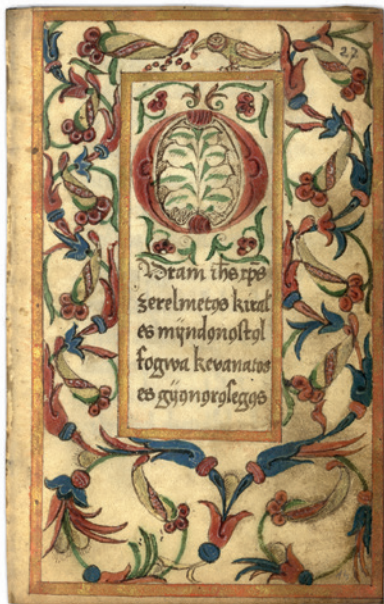 27
O
Wram ihs xps
zerelmetos kiral
es mÿndonostol
fogwa kevanatos
es gÿonorosegos